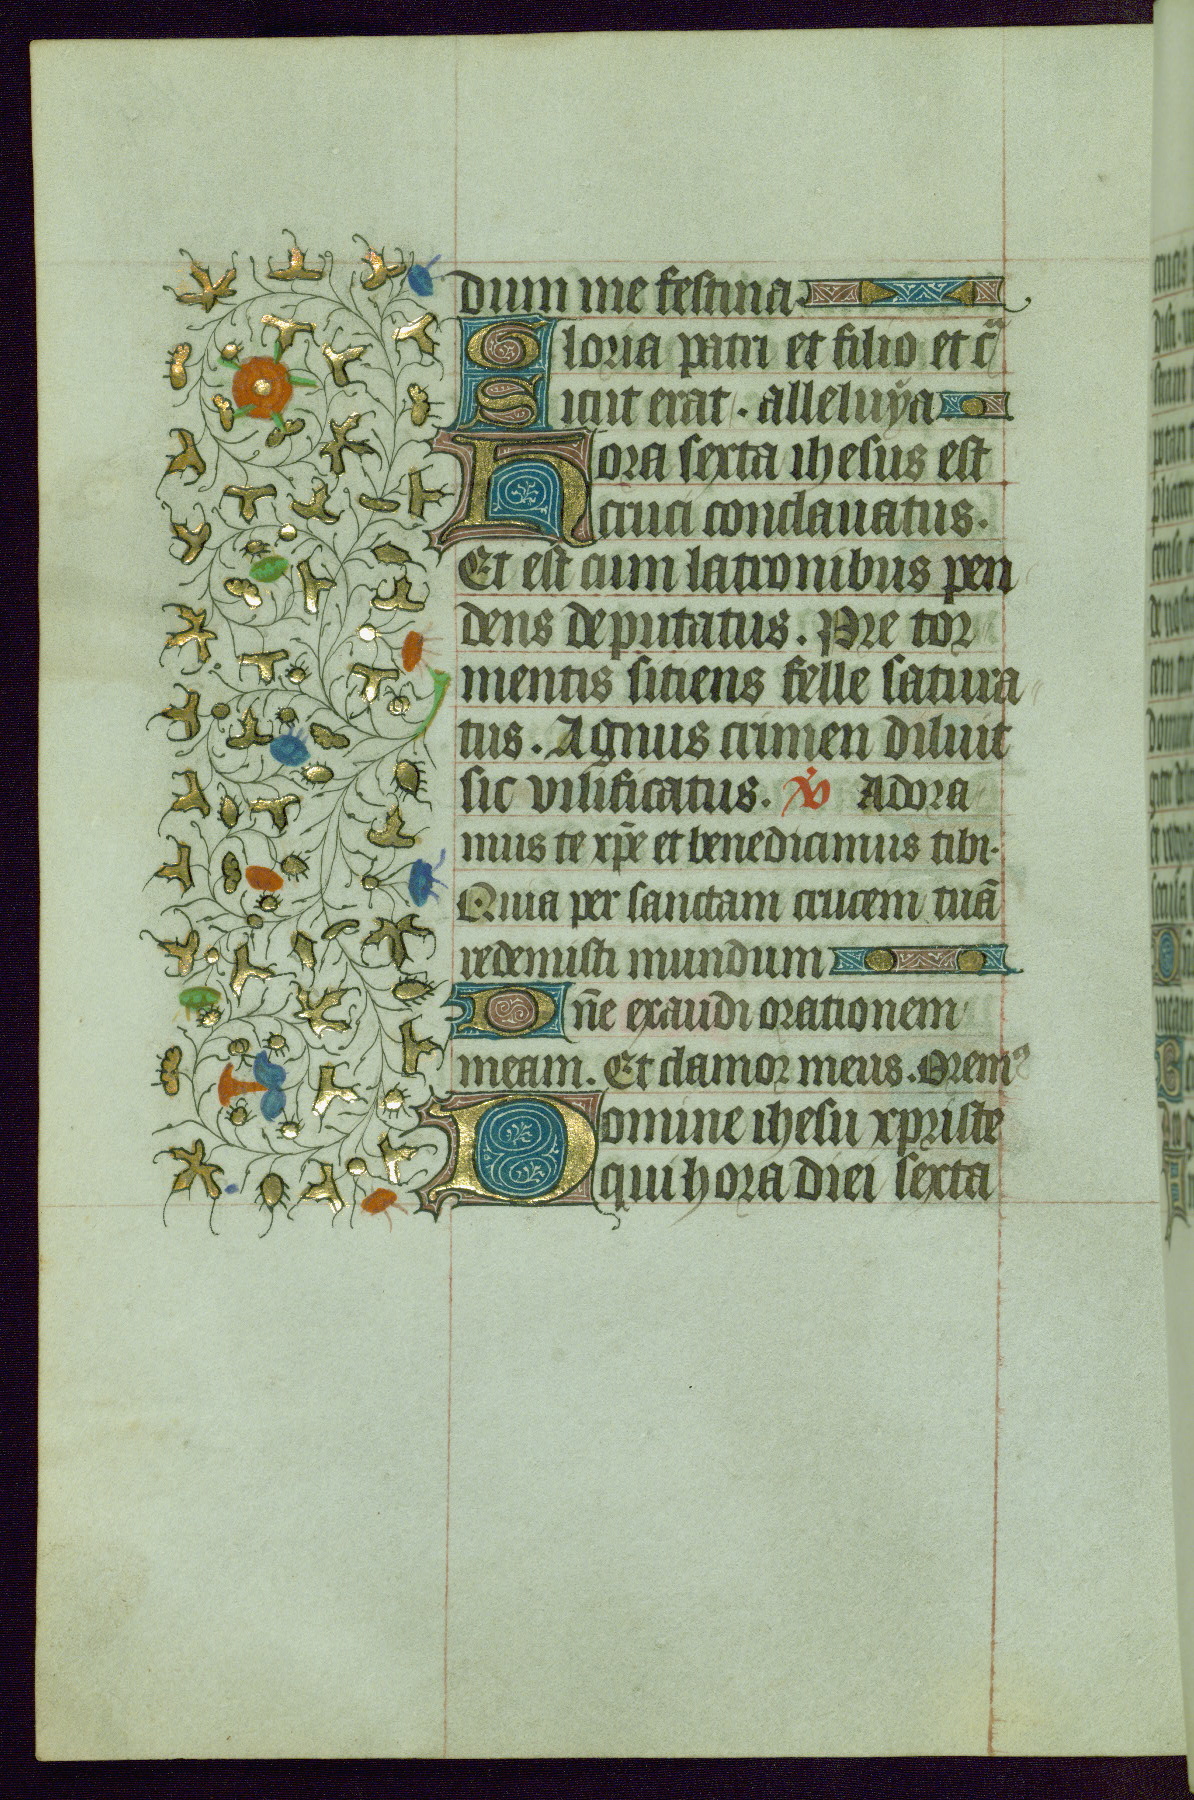 dum me festina.
Gloria patri et filio et c̃
Sicut erat. alleluẏa
Hora sexta ihesus est
cruci conclauatus.
Et est cum latronibus pen
dens deputatus. Pre tor
mentis sitiens felle satura
tus. Agnus crimen diluit
sic vilificatus. ℣ Adora
mus te xp̄e et benedicimus tibi.
Quia per sanctam crucem tuā
redemisti mundum
Dn̄e exaudi orationem
meam. Et clamor meus. Oremꝰ
Domine ihesu xpriste
qui hora diei sexta